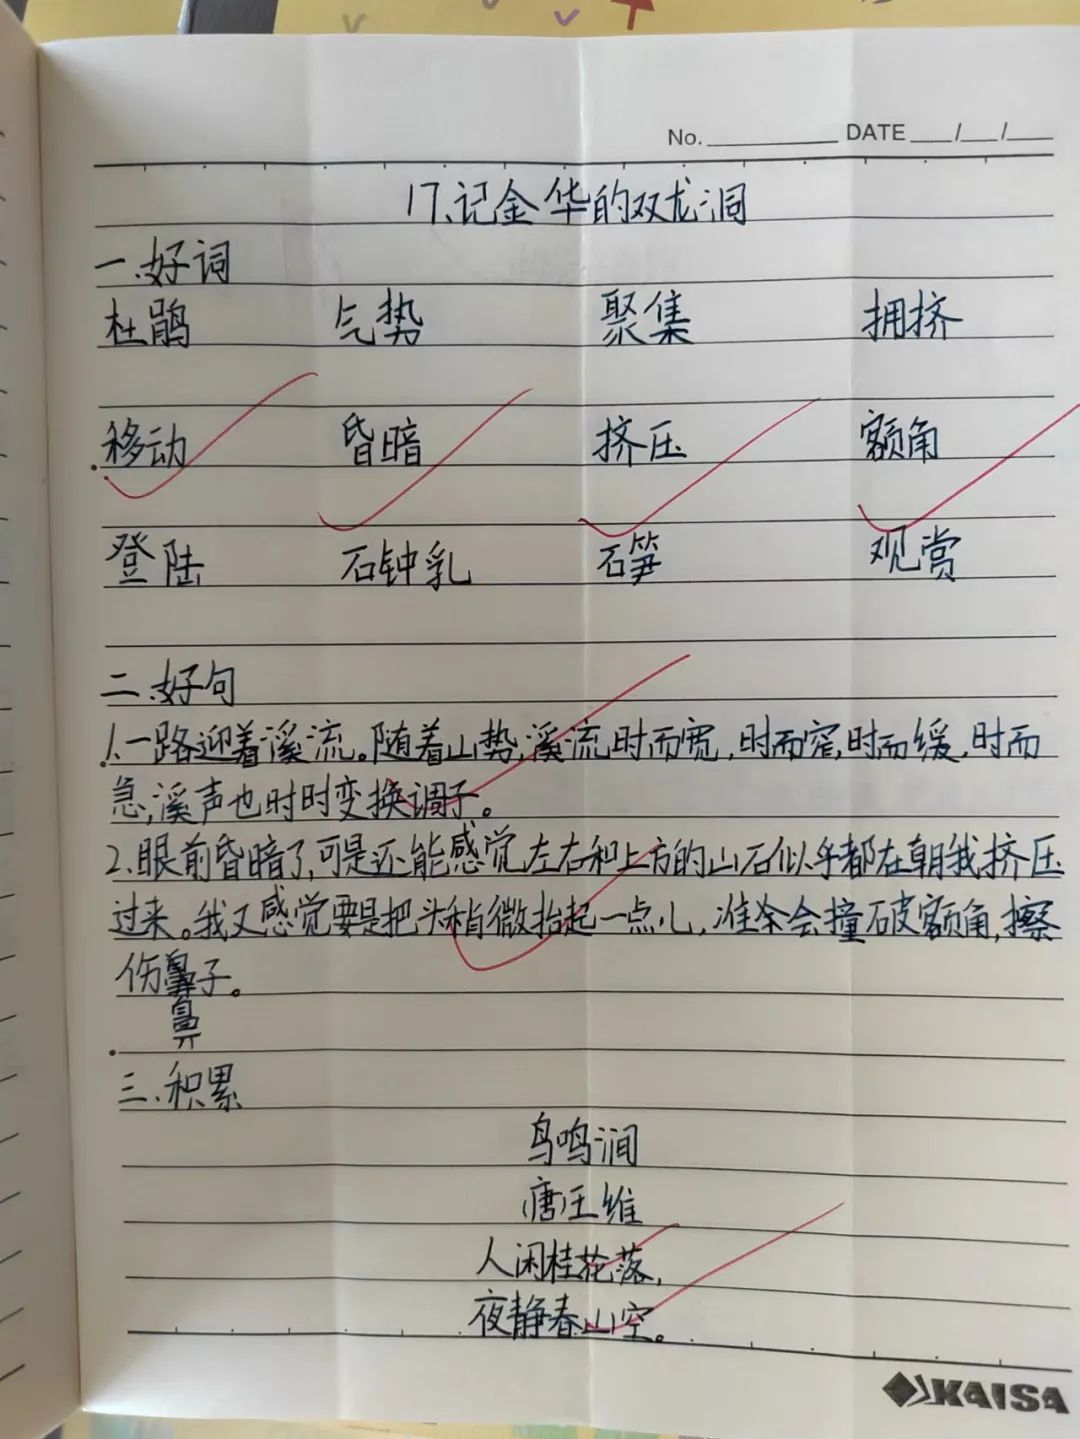 No. DATE / /
17、记金华的双龙洞
一、好词
杜鹃 气势 聚集 拥挤
移动 昏暗 挤压 额角
登陆 石钟乳 石笋 观赏
二、好句
1、一路迎着溪流。随着山势,溪流时而宽,时而窄,时而缓,时而
急,溪声也时时变换调子。
2、眼前昏暗了,可是还能感觉左右和上方的山石似乎都在朝我挤压
过来。我又感觉要是把头稍微抬起一点儿,准会撞破额角,擦
伤鼻子。
鼻
三、积累
鸟鸣涧
唐王维
人闲桂花落,
夜静春山空。
KAISA